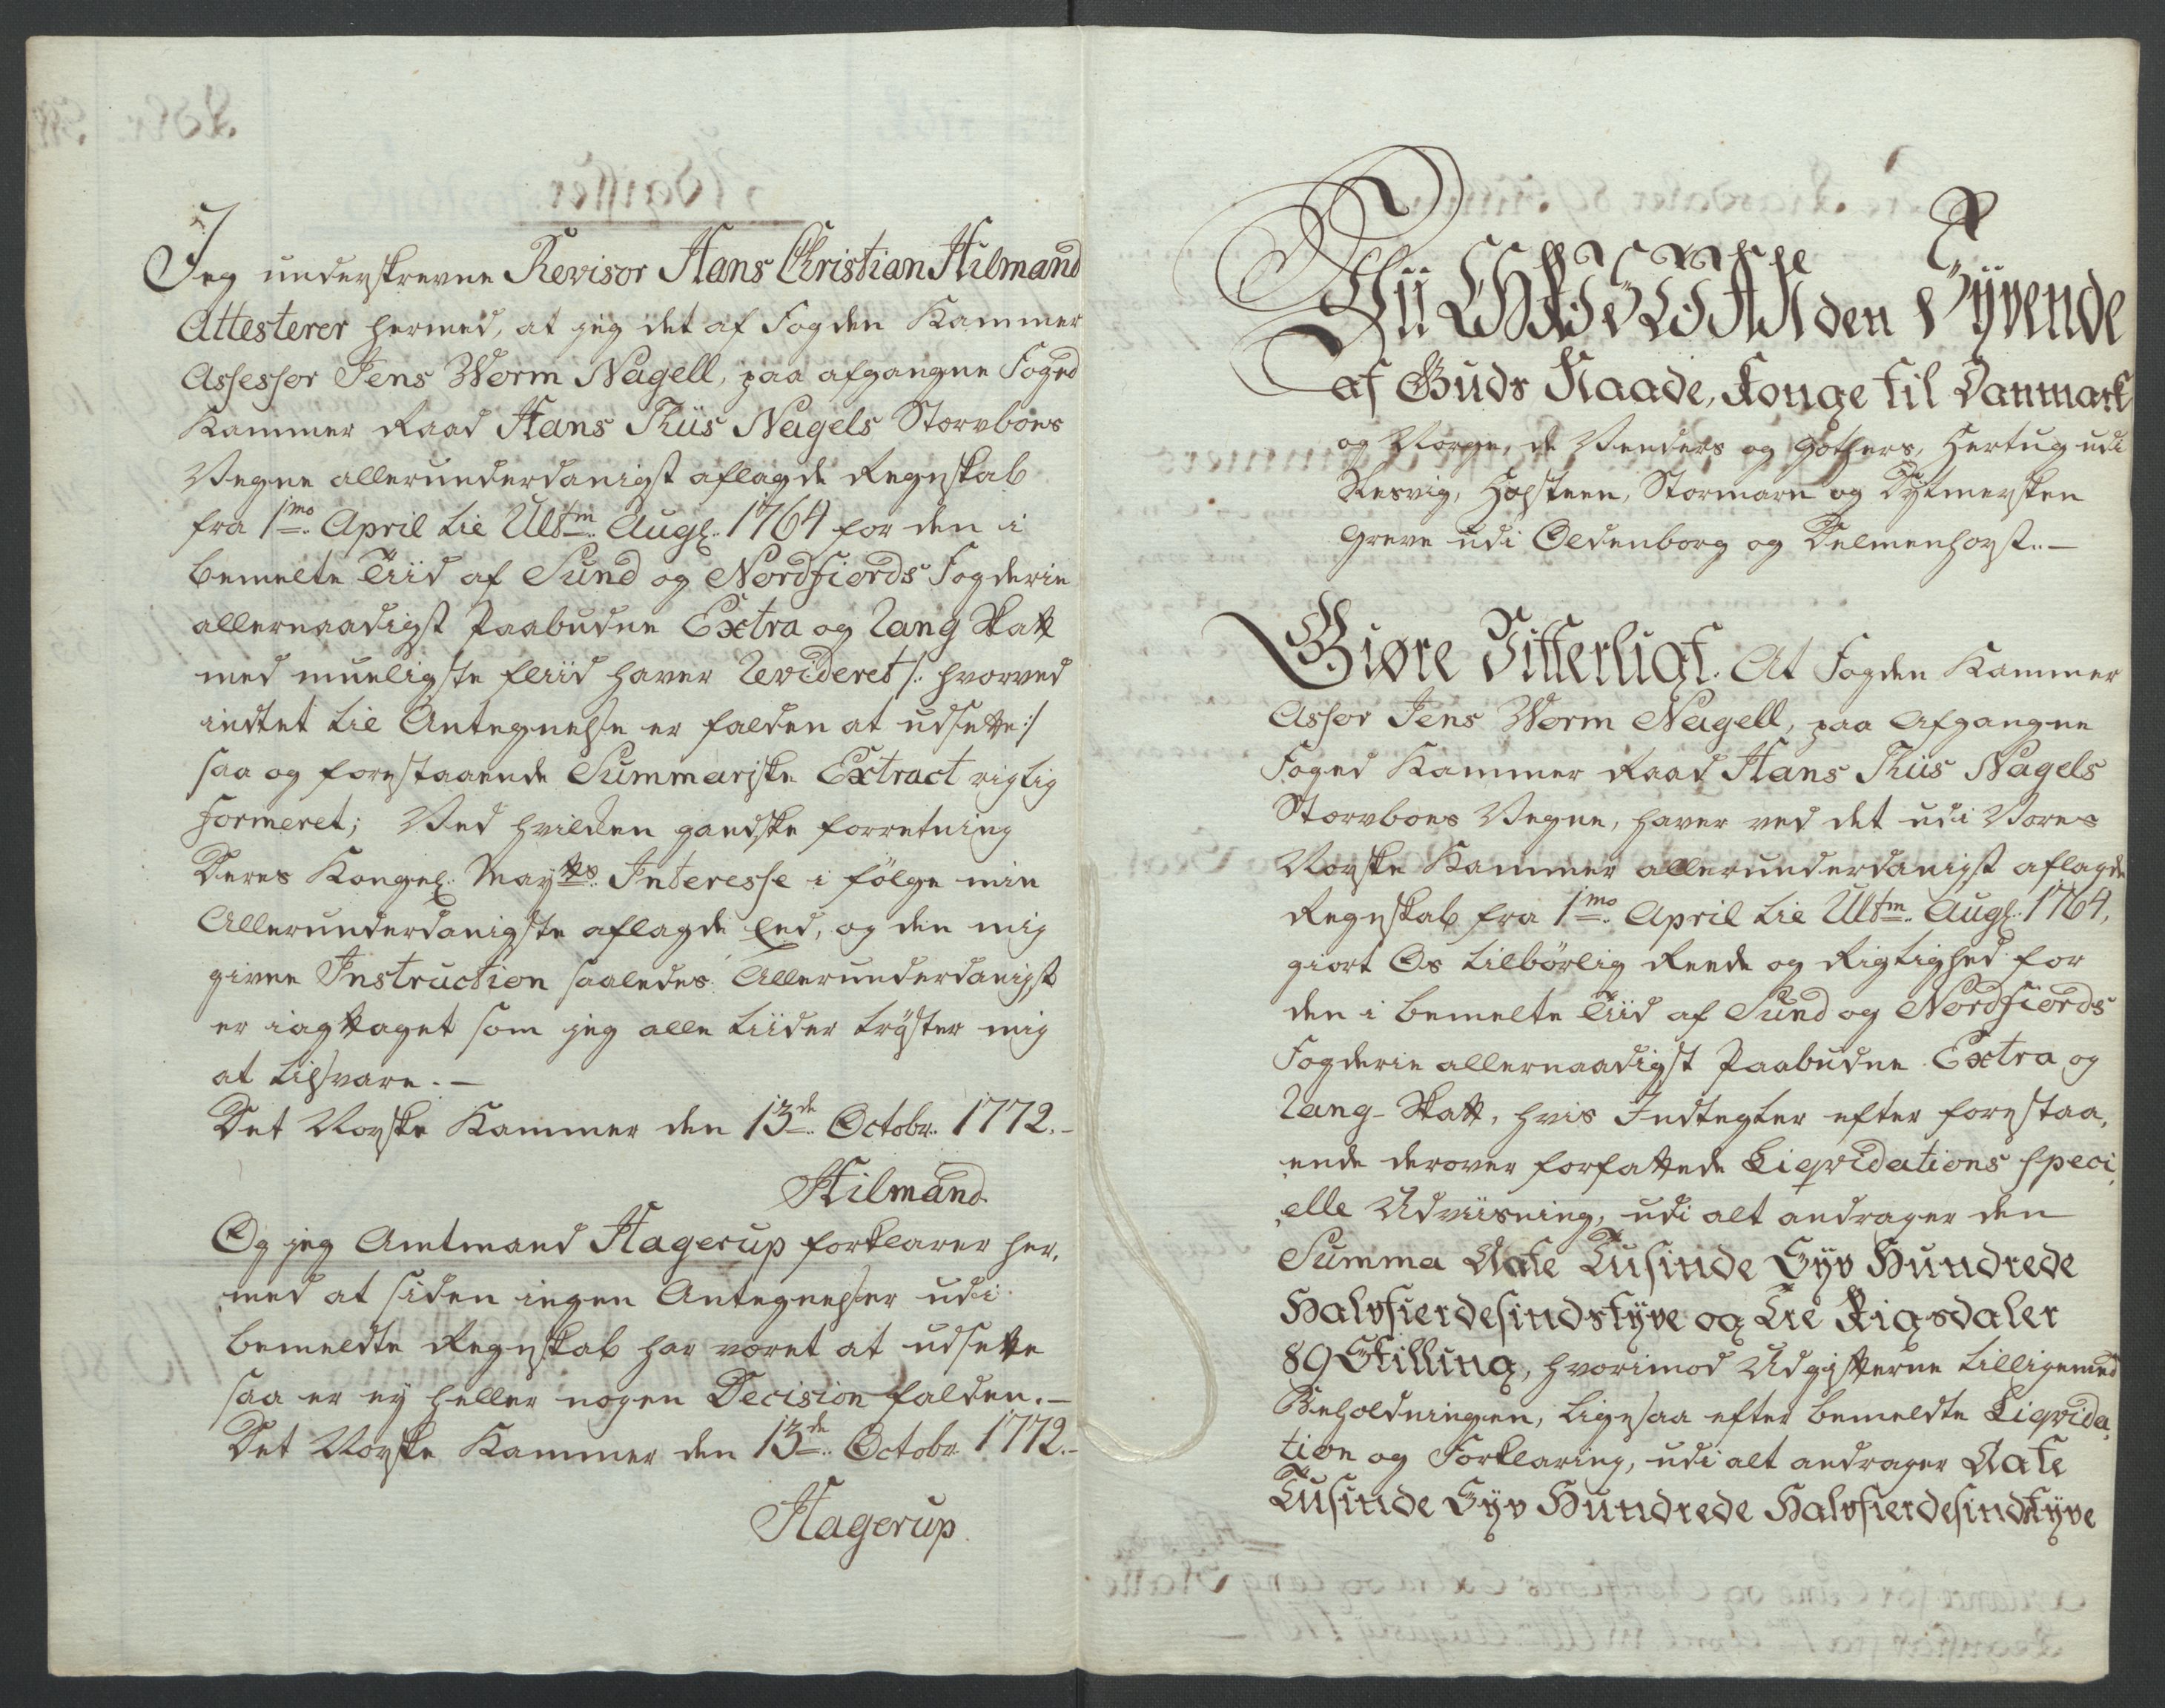 Jeg underskrevne Revisor Hans Christian Hilmand
Attesterer hermed, at jeg det af Fogden Kammer
Assessor Jens Worm Nagell, paa afgangne Foged
Kammer Raad Hans Thiis Nagels Stervboes
Vegne allerunderdanigst aflagde Regnskab
fra 1mo. April til Ultm. Aug. 1764 for den i
bemelte Tiid af Sund og Nordfiords Fogderie
allernaadigst Paabudne Extra og Rang Skatt
med mueligste fliid haver Revideret /: hvorved
indtet til Antegnelse er falden at udsette :/
saa og forestaaende Summariske Extract rigtig
Formeret; Ved hvilken gandske forretning
Deres Kongel. Mayts. Interesse i følge min
Allerunderdanigste aflagde Eed, og den mig
givne Instruction saaledes Allerunderdanigst
er iagttaget som jeg alle tiider trøster mig
at tilsvare. –
Det Norske Kammer den 13de Octobr. 1772. –
Hilmand.
Og jeg Amtmand Hagerup forklarer her,
med at siden ingen Antegnelser udi
bemeldte Regnskab har været at udsette
saa er ey heller nogen Decision falden. –
Det Norske Kammer den 13de Octobr. 1772. –
Hagerup.
Vii CHRISTIAN den Syvende
af Guds Naade, Konge til Danmark
og Norge, de Venders og Gothers, Hertug udi
Slesvig, Holsteen, Stormarn og Dytmersken
Greve udi Oldenborg og Delmenhorst. –
Giøre Vitterligt. At Fogden Kammer
Asssor Jens Worm Nagell, paa Afgangne
Foged Kammer Raad Hans Thiis Nagels
Stervboes Vegne, haver ved det udi Vores
Norske Kammer allerunderdanigst aflagde
Regnskab fra 1mo. April til Ultm. Aug. 1764,
giort Os tilbørlig Reede og Rigtighed for
den i bemelte Tiid af Sund og Nordfiords
Fogderie allernaadigst Paabudne Extra og
Rang-Skatt, hvis Indtegter efter forestaa,
ende derover forfattede Liqvidations speci,
elle Udviisning, udi alt andrager den
Summa Aate Tusinde Syv Hundrede
Halvfierdesindstyve og Tre Rigsdaler
89 Skilling, hvorimod Udgifterne tilligemed
Beholdningen, ligesaa efter bemeldte Liqvida,
tion og Forklaring, udi alt andrager Aate
Tusinde Syv Hundrede Halvfierdesindstyve